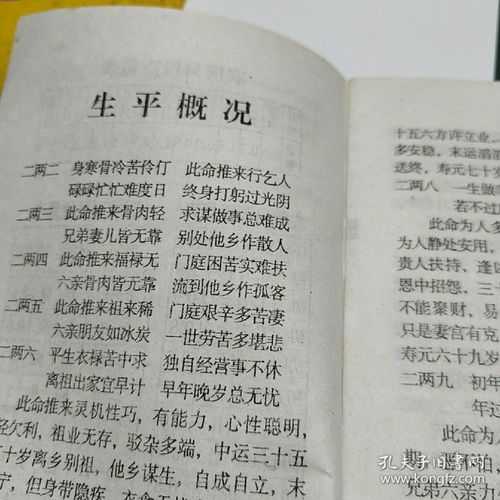 生平概况
二两二 身寒骨冷苦伶仃 此命推来行乞人
碌碌忙忙难度日 终身打躬过光阴
二两三 此命推来骨肉轻 求谋做事总难成
兄弟妻儿皆无靠 别处他乡作散人
二两四 此命推来福禄无 门庭困苦实难扶
六亲骨肉皆无靠 流到他乡作孤客
二两五 此命推来祖来稀 门庭艰辛多苦妻
六亲朋友如冰炭 一世劳苦多堪悲
二两六 平生衣禄苦中求 独自经营事不休
离祖出家宜早计 早年晚岁总无忧
此命推来灵机性巧,有能力,心性聪明,
欠利,祖业无存,驳杂多端,中运三十五
十岁离乡别祖,他乡谋生,自成自立,末
宁,但身带隐疾,
十五六方许立业,
多安稳,末运滔滔
送终,寿元七十岁
二两八 一生做
若不过
此命为人多
为人静处安用,
贵人扶持,逢
恩中招怨,三十
不能聚财,易
只是妻宫有克
寿元六十九岁
二两九 初年
年过
此命为人
期,恶石怕
兄弟六亲
孔夫子旧书网